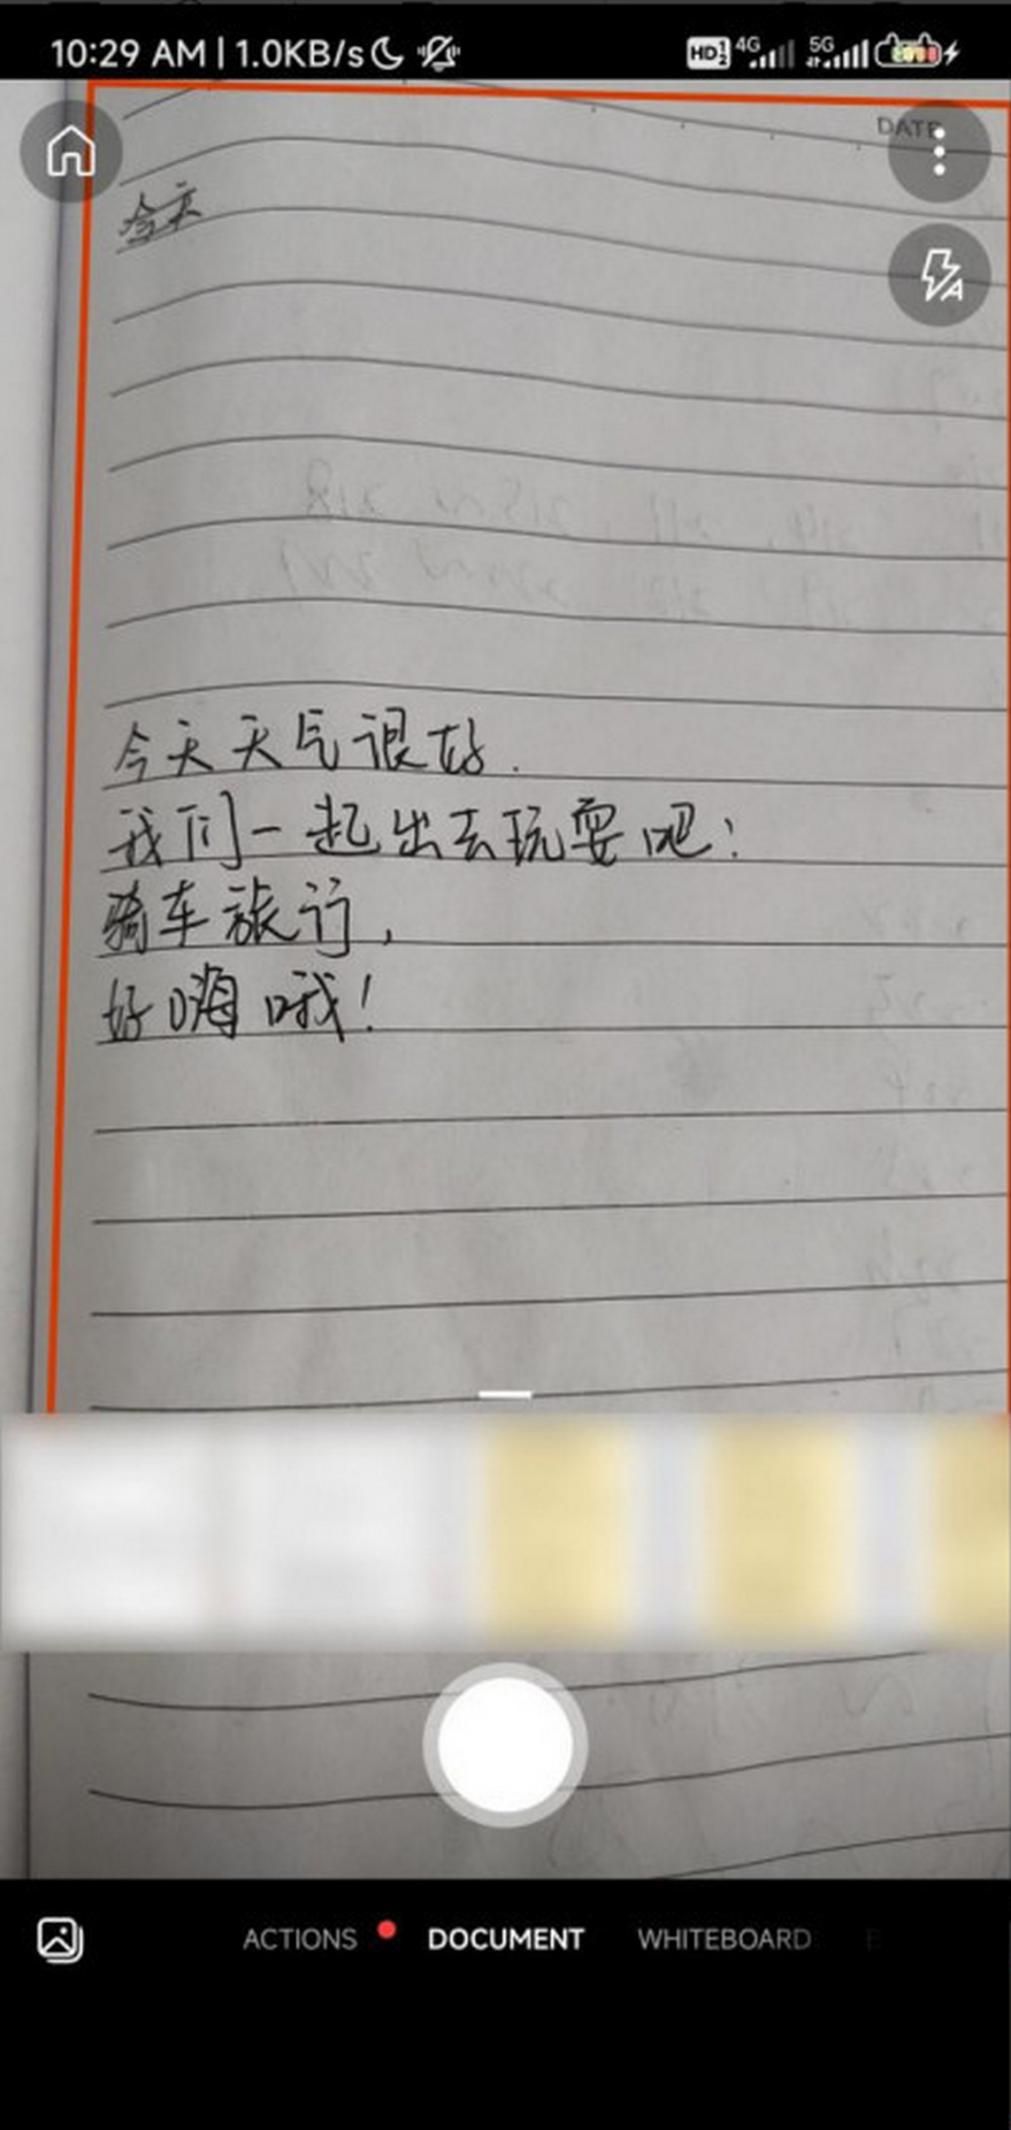 10:29 AM | 1.0KB/s HD 4G 5G
DATE
今天
今天天气很好.
我们一起出去玩耍吧!
骑车旅行,
好嗨哦!
ACTIONS DOCUMENT WHITEBOARD